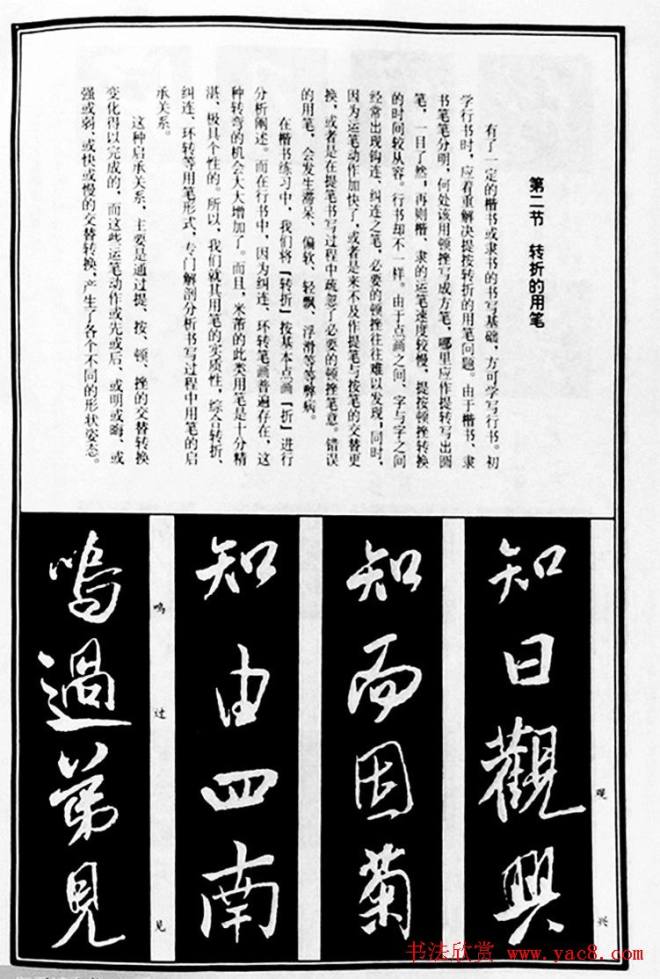 第二节　转折的用笔
有了一定的楷书或隶书的书写基础，方可学写行书。初
学行书时，应着重解决提按转折的用笔问题。由于楷书、隶
书笔笔分明，何处该用顿挫写成方笔，哪里应作提转写出圆
笔，一目了然，再则楷、隶的运笔速度较慢，提按顿挫转换
的时间较从容。行书却不一样。由于点画之间、字与字之间
经常出现钩连、纠连之笔，必要的顿挫往往难以发现，同时，
因为运笔动作加快了，或者是来不及作提笔与按笔的交替更
换，或者是在提笔书写过程中疏忽了必要的顿挫笔意。错误
的用笔，会发生滞呆、偏软、轻飘、浮滑等等弊病。
在楷书练习中，我们将「转折」按基本点画「折」进行
分析阐述。而在行书中，因为纠连、环转笔画普遍存在，这
种转弯的机会大大增加了。而且，米芾的此类用笔是十分精
湛、极具个性的。所以，我们就其用笔的实质性，综合转折、
纠连、环转等用笔形式，专门解剖分析书写过程中用笔的启
承关系。
这种启承关系，主要是通过提、按、顿、挫的交替转换
变化得以完成的，而这些运笔动作或先或后、或明或晦、或
强或弱、或快或慢的交替转换，产生了各个不同的形状姿态。
知日觀興
观
兴
知而因菊
知由四南
鳴過第見
鸣
过
见
书法欣赏 www.yac8.com